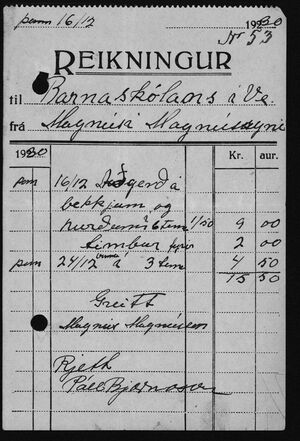 pann 16/12 1930
Nr 53
REIKNINGUR
til Barnaskólans í Ve.
frá Magnúsi Magnússyni
1930 Kr. aur.
þann 16/12 Aðgerð á
bekkjum og
hurðum 6 tím 1/50 9 00
timbur fyrir 2 00
þann 24/12 á 3 tím 4 50
15 50
Greitt
Magnús Magnússon
Rjett
Páll Bjarnason